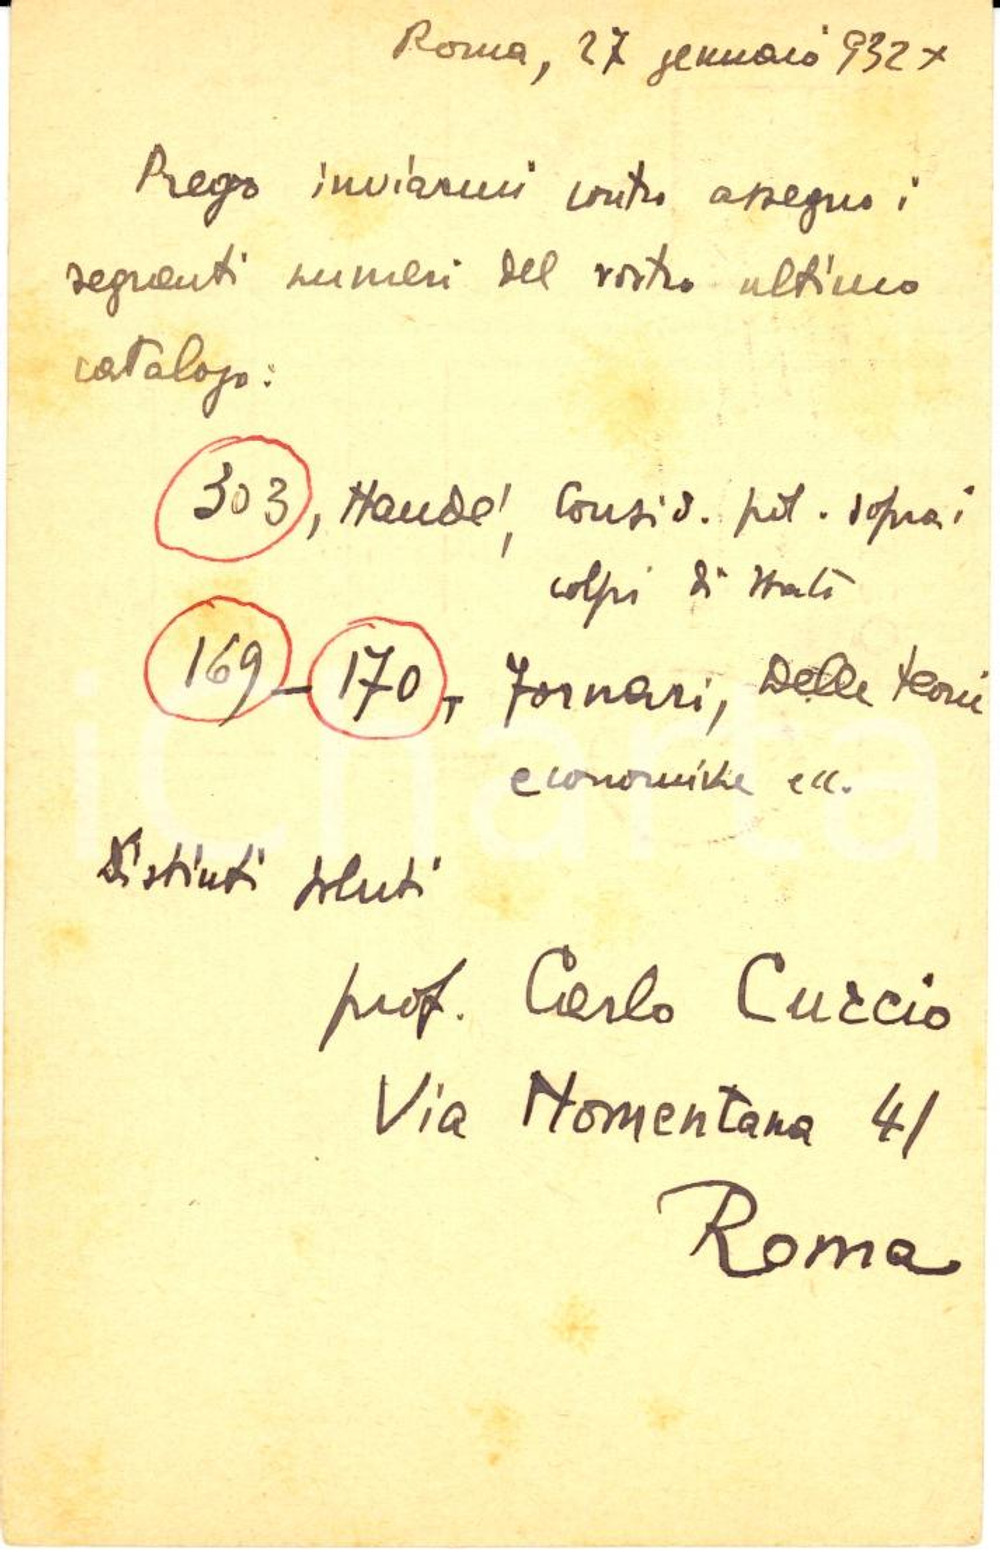 Roma, 27 gennaio 932 X
Prego inviarmi contro assegno i
seguenti numeri del vostro ultimo
catalogo:
303, Naudé, Consid. pol. sopra i
colpi di stato
169 - 170, Fornari, Delle teorie
economiche ecc.
icharta
Distinti saluti
prof. Carlo Curcio
Via Nomentana 41
Roma